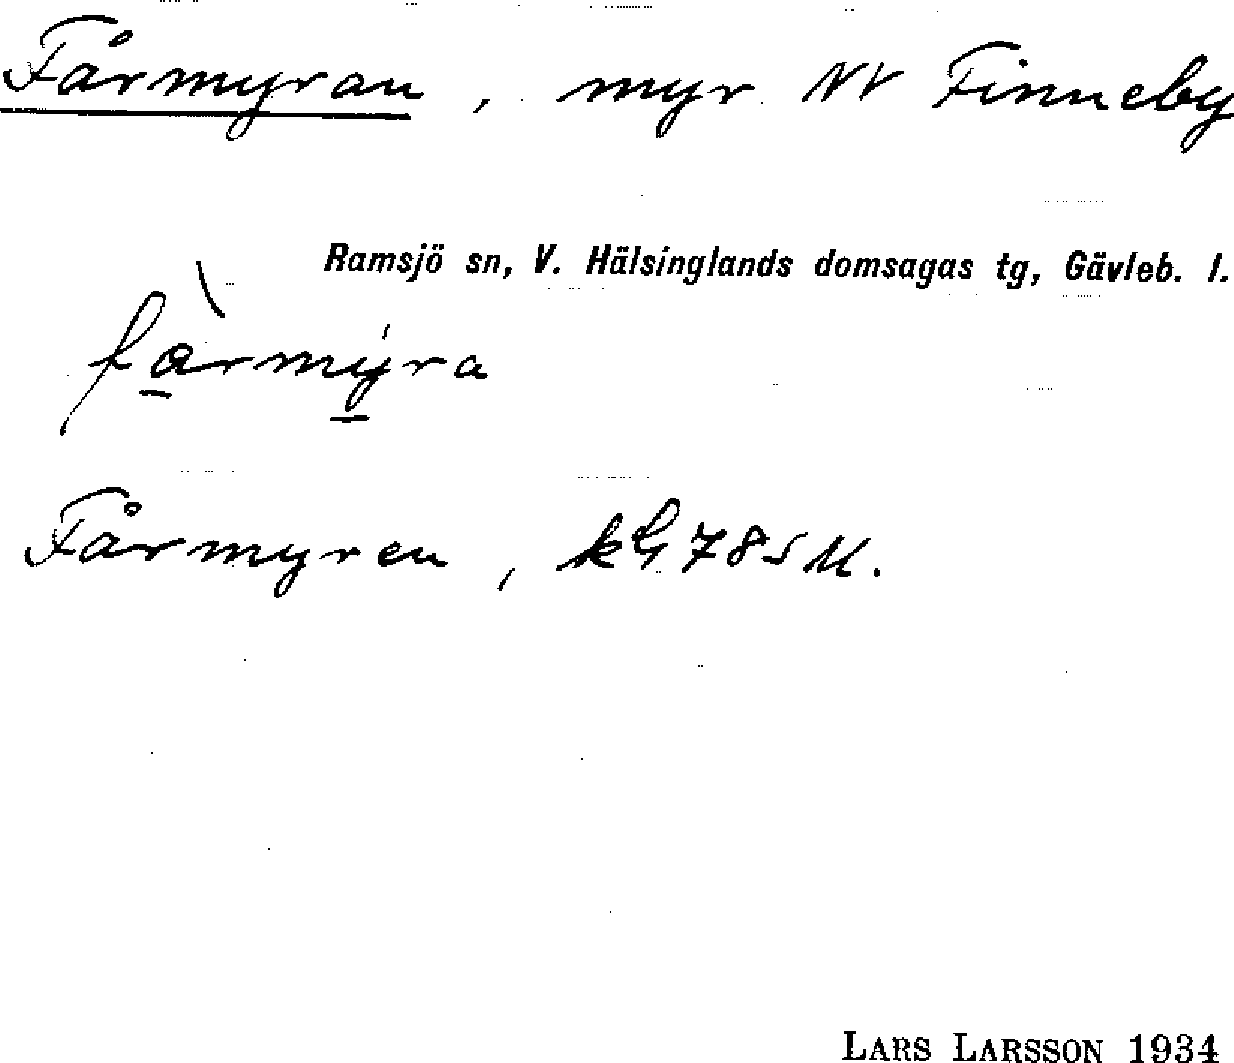 Fårmyran, myr NV Finneby
Ramsjö sn, V. Hälsinglands domsagas tg, Gävleb. l.
fàrmy̠ra
Fårmyren,
LARS LARSSON 1934